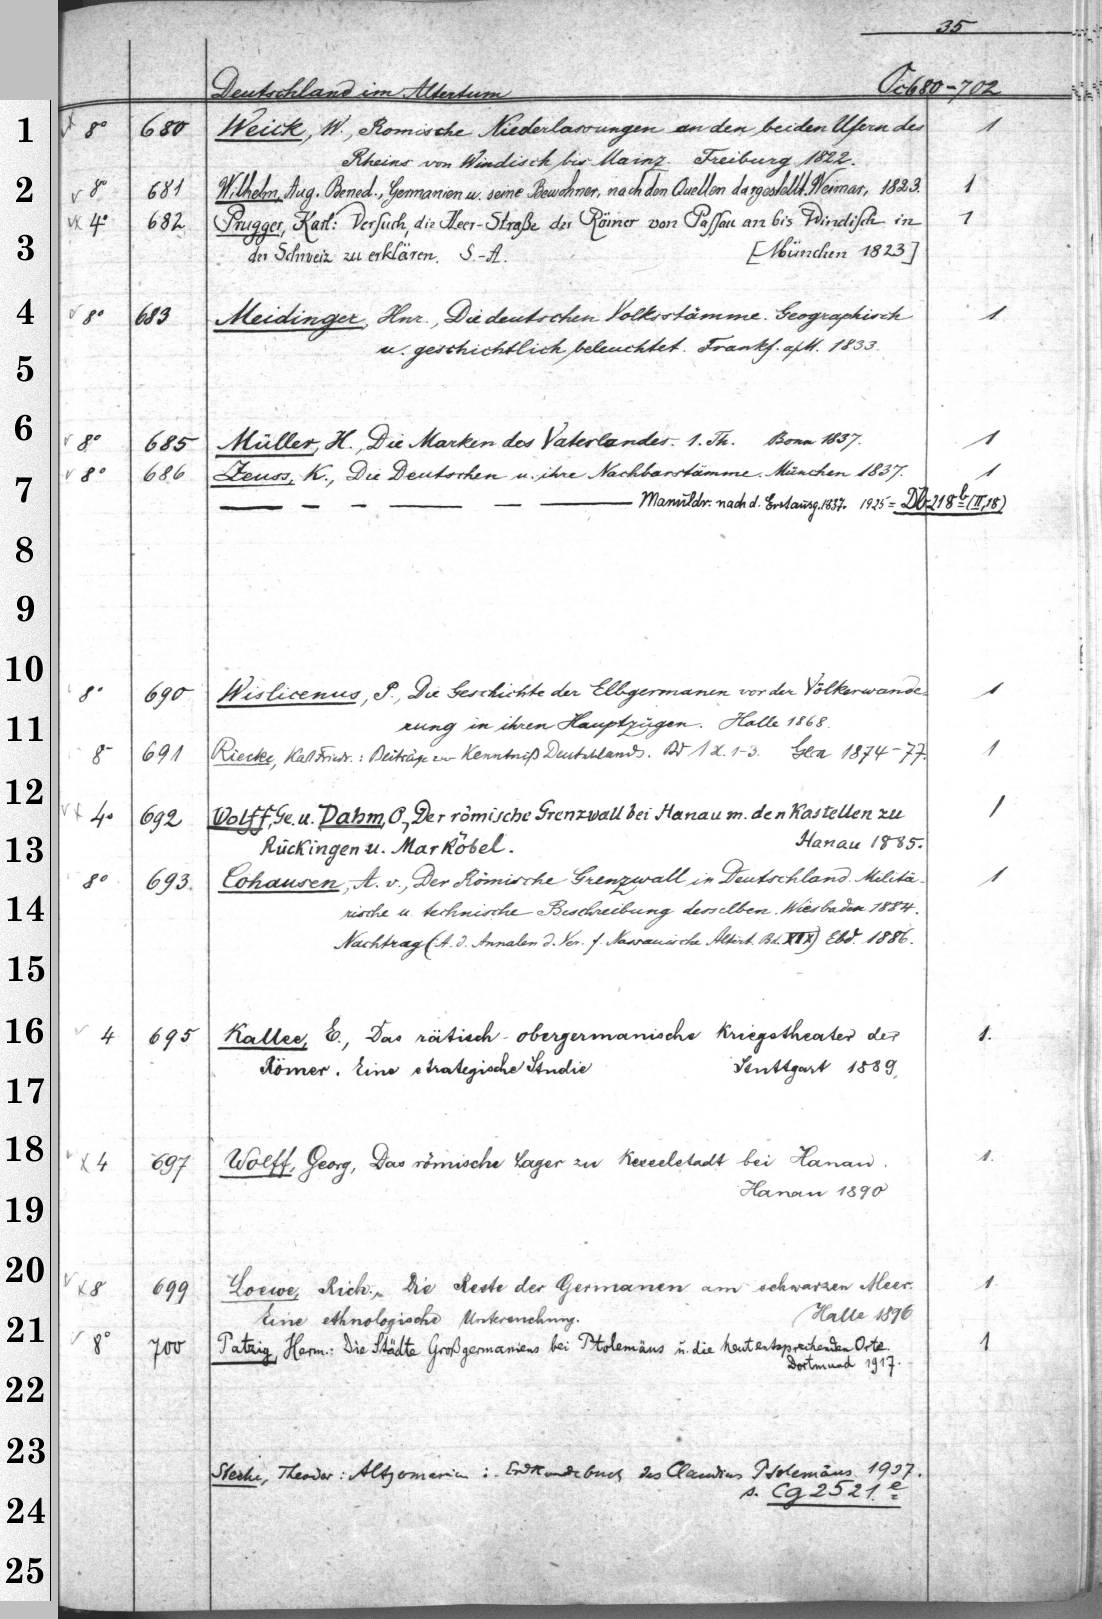 35
Deutschland im Altertum Oc 680-702
1 8° 680 Weick, W., Römische Niederlassungen an den beiden Ufern des 1
Rheins von Windisch bis Mainz. Freiburg 1822.
2 8° 681 Wilhelm, Aug. Bened., Germanien u. seine Bewohner, nach den Quellen dargestellt. Weimar, 1823. 1
4° 682 Prugger, Karl: Versuch, die Heer-Straße der Römer von Passau an bis Windisch in 1
3 der Schweiz zu erklären. S.-A. [München 1823]
4 8° 683 Meidinger, Hnr., Die deutschen Volksstämme. Geographisch 1
u. geschichtlich beleuchtet. Frankf. a/M. 1833.
5
6 8° 685 Müller, H., Die Marken des Vaterlandes. 1. Th. Bonn 1837. 1
8° 686 Zeuss, K., Die Deutschen u. ihre Nachbarstämme. München 1837. 1
7 — — — — — — Manuldr. nach d. Erstausg. 1837. 1925 = Db 218b (II,18)
8
9
10
8° 690 Wislicenus, P., Die Geschichte der Elbgermanen vor der Völkerwande- 1
11 rung in ihren Hauptzügen. Halle 1868.
8° 691 Riecke, Karl Friedr.: Beiträge zur Kenntniß Deutschlands. Bd 1 X. 1-3. Gera 1874-77. 1
12
4° 692 Wolff, Ge. u. Dahm, O., Der römische Grenzwall bei Hanau m. den Kastellen zu 1
13 Rückingen u. Marköbel. Hanau 1885.
8° 693. Cohausen, A. v., Der Römische Grenzwall in Deutschland. Militä- 1
14 rische u. technische Beschreibung desselben. Wiesbaden 1884.
Nachtrag (A. d. Annalen d. Ver. f. Nassauische Altert. Bd. XIX) Ebd. 1886.
15
16 4 695 Kallee, E., Das rätisch-obergermanische Kriegstheater der 1.
Römer. Eine strategische Studie Stuttgart 1889.
17
18 4 697 Wolff, Georg, Das römische Lager zu Kesselstadt bei Hanau. 1.
19 Hanau 1890
20 8 699 Loewe, Rich., Die Reste der Germanen am schwarzen Meer. 1
Eine ethnologische Untersuchung. Halle 1896
21 8° 700 Patzig, Herm.: Die Städte Großgermaniens bei Ptolemäus u. die heut entsprechenden Orte. 1
Dortmund 1917.
22
23
Steche, Theodor: Altgermanien im Erdkundebuch des Claudius Ptolemäus 1937.
24 s. Cg 2521 e
25